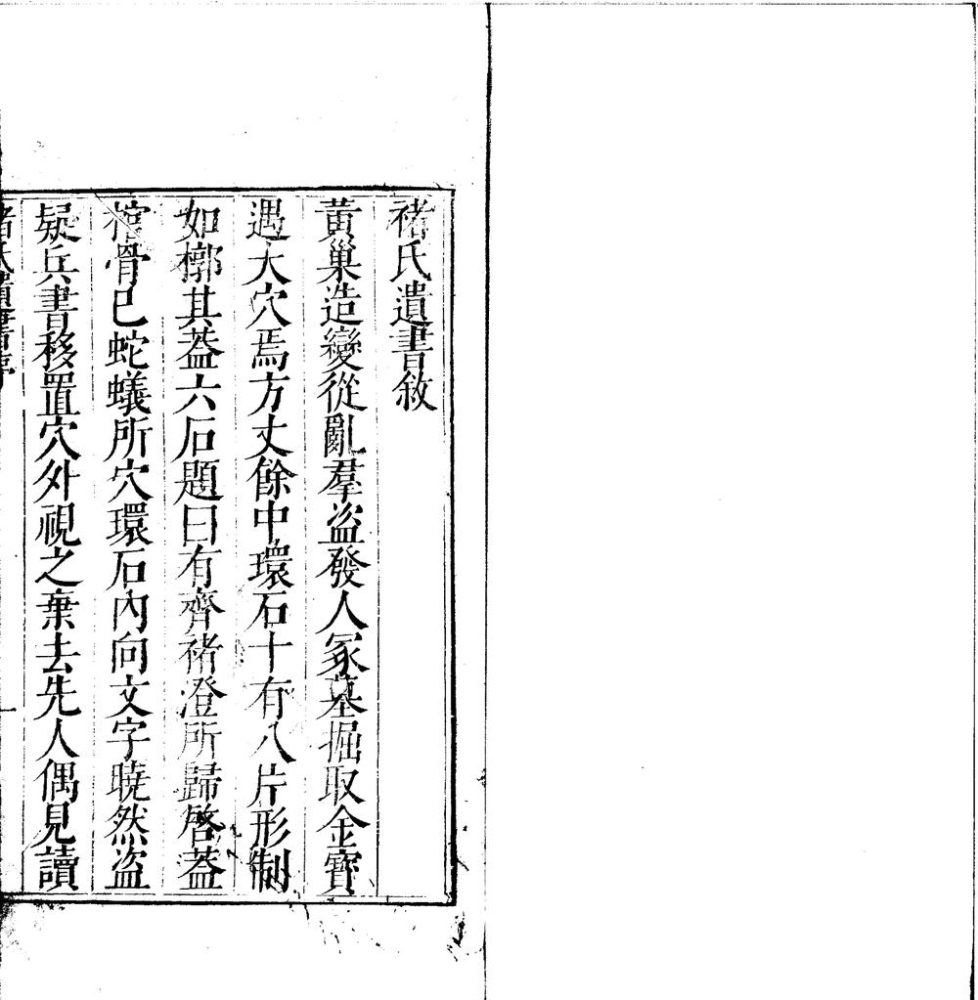 褚氏遺書敘
黃巢造變從亂羣盜發人冢墓掘取金寶
遇大穴焉方丈餘中環石十有八片形制
如槨其蓋六石題曰有齊褚澄所歸啓蓋
棺骨已蛇蟻所穴環石內向文字曉然盜
疑兵書移置穴外視之棄去先人偶見讀
褚氏遺書序
一